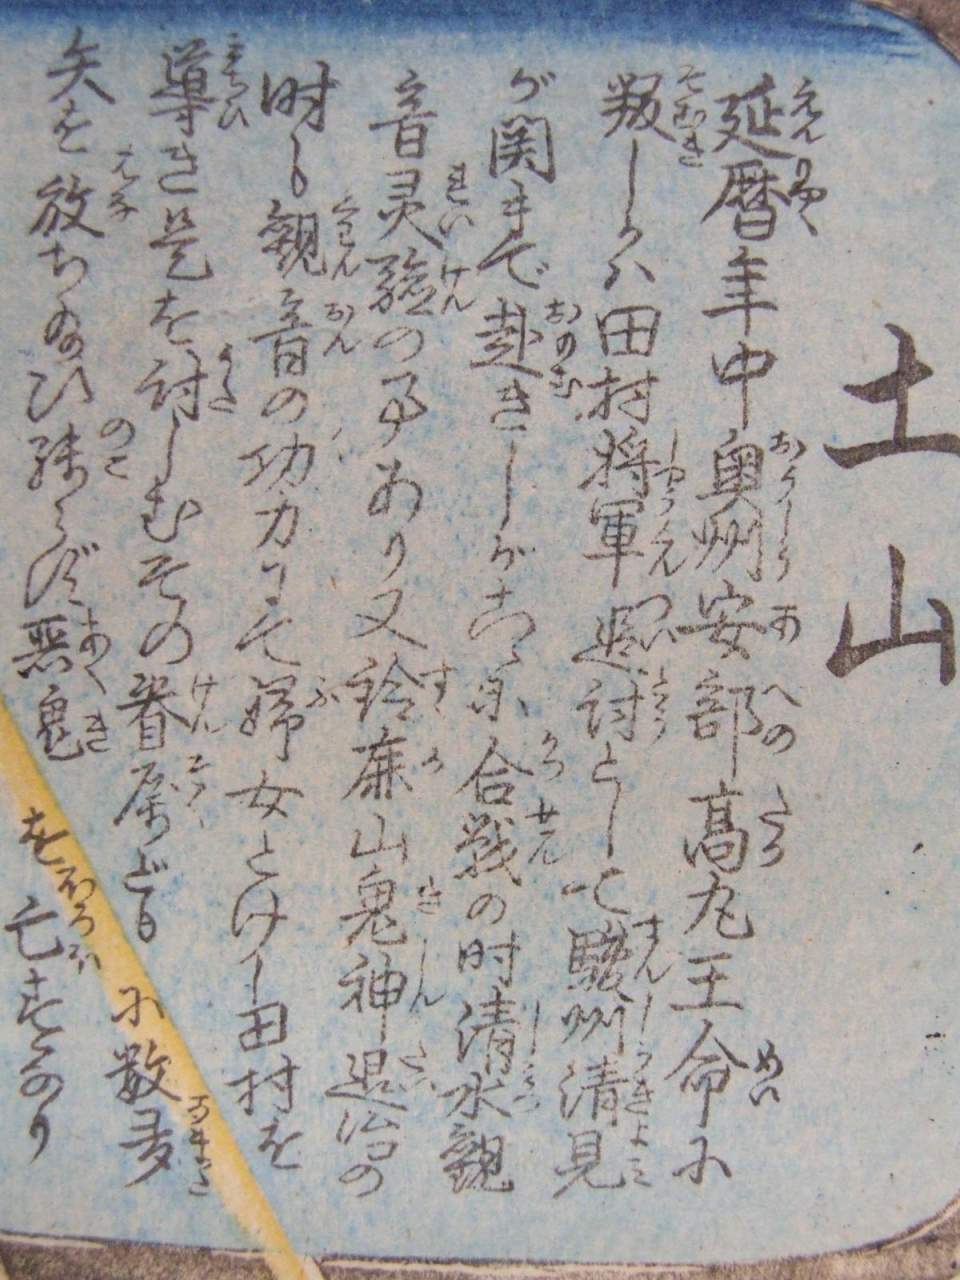 土山
延暦年中奥州安部高丸王命に
叛しかバ田村将軍追討として駿州清見
が関まで赴きしがこゝに合戦の時清水観
音灵驗の事あり又鈴鹿山鬼神退治の
时も観音の功力にて婦女とけし田村を
導き是を討しむその眷属ども に数多
矢を放ち給ひ残らず悪鬼 亡すなり